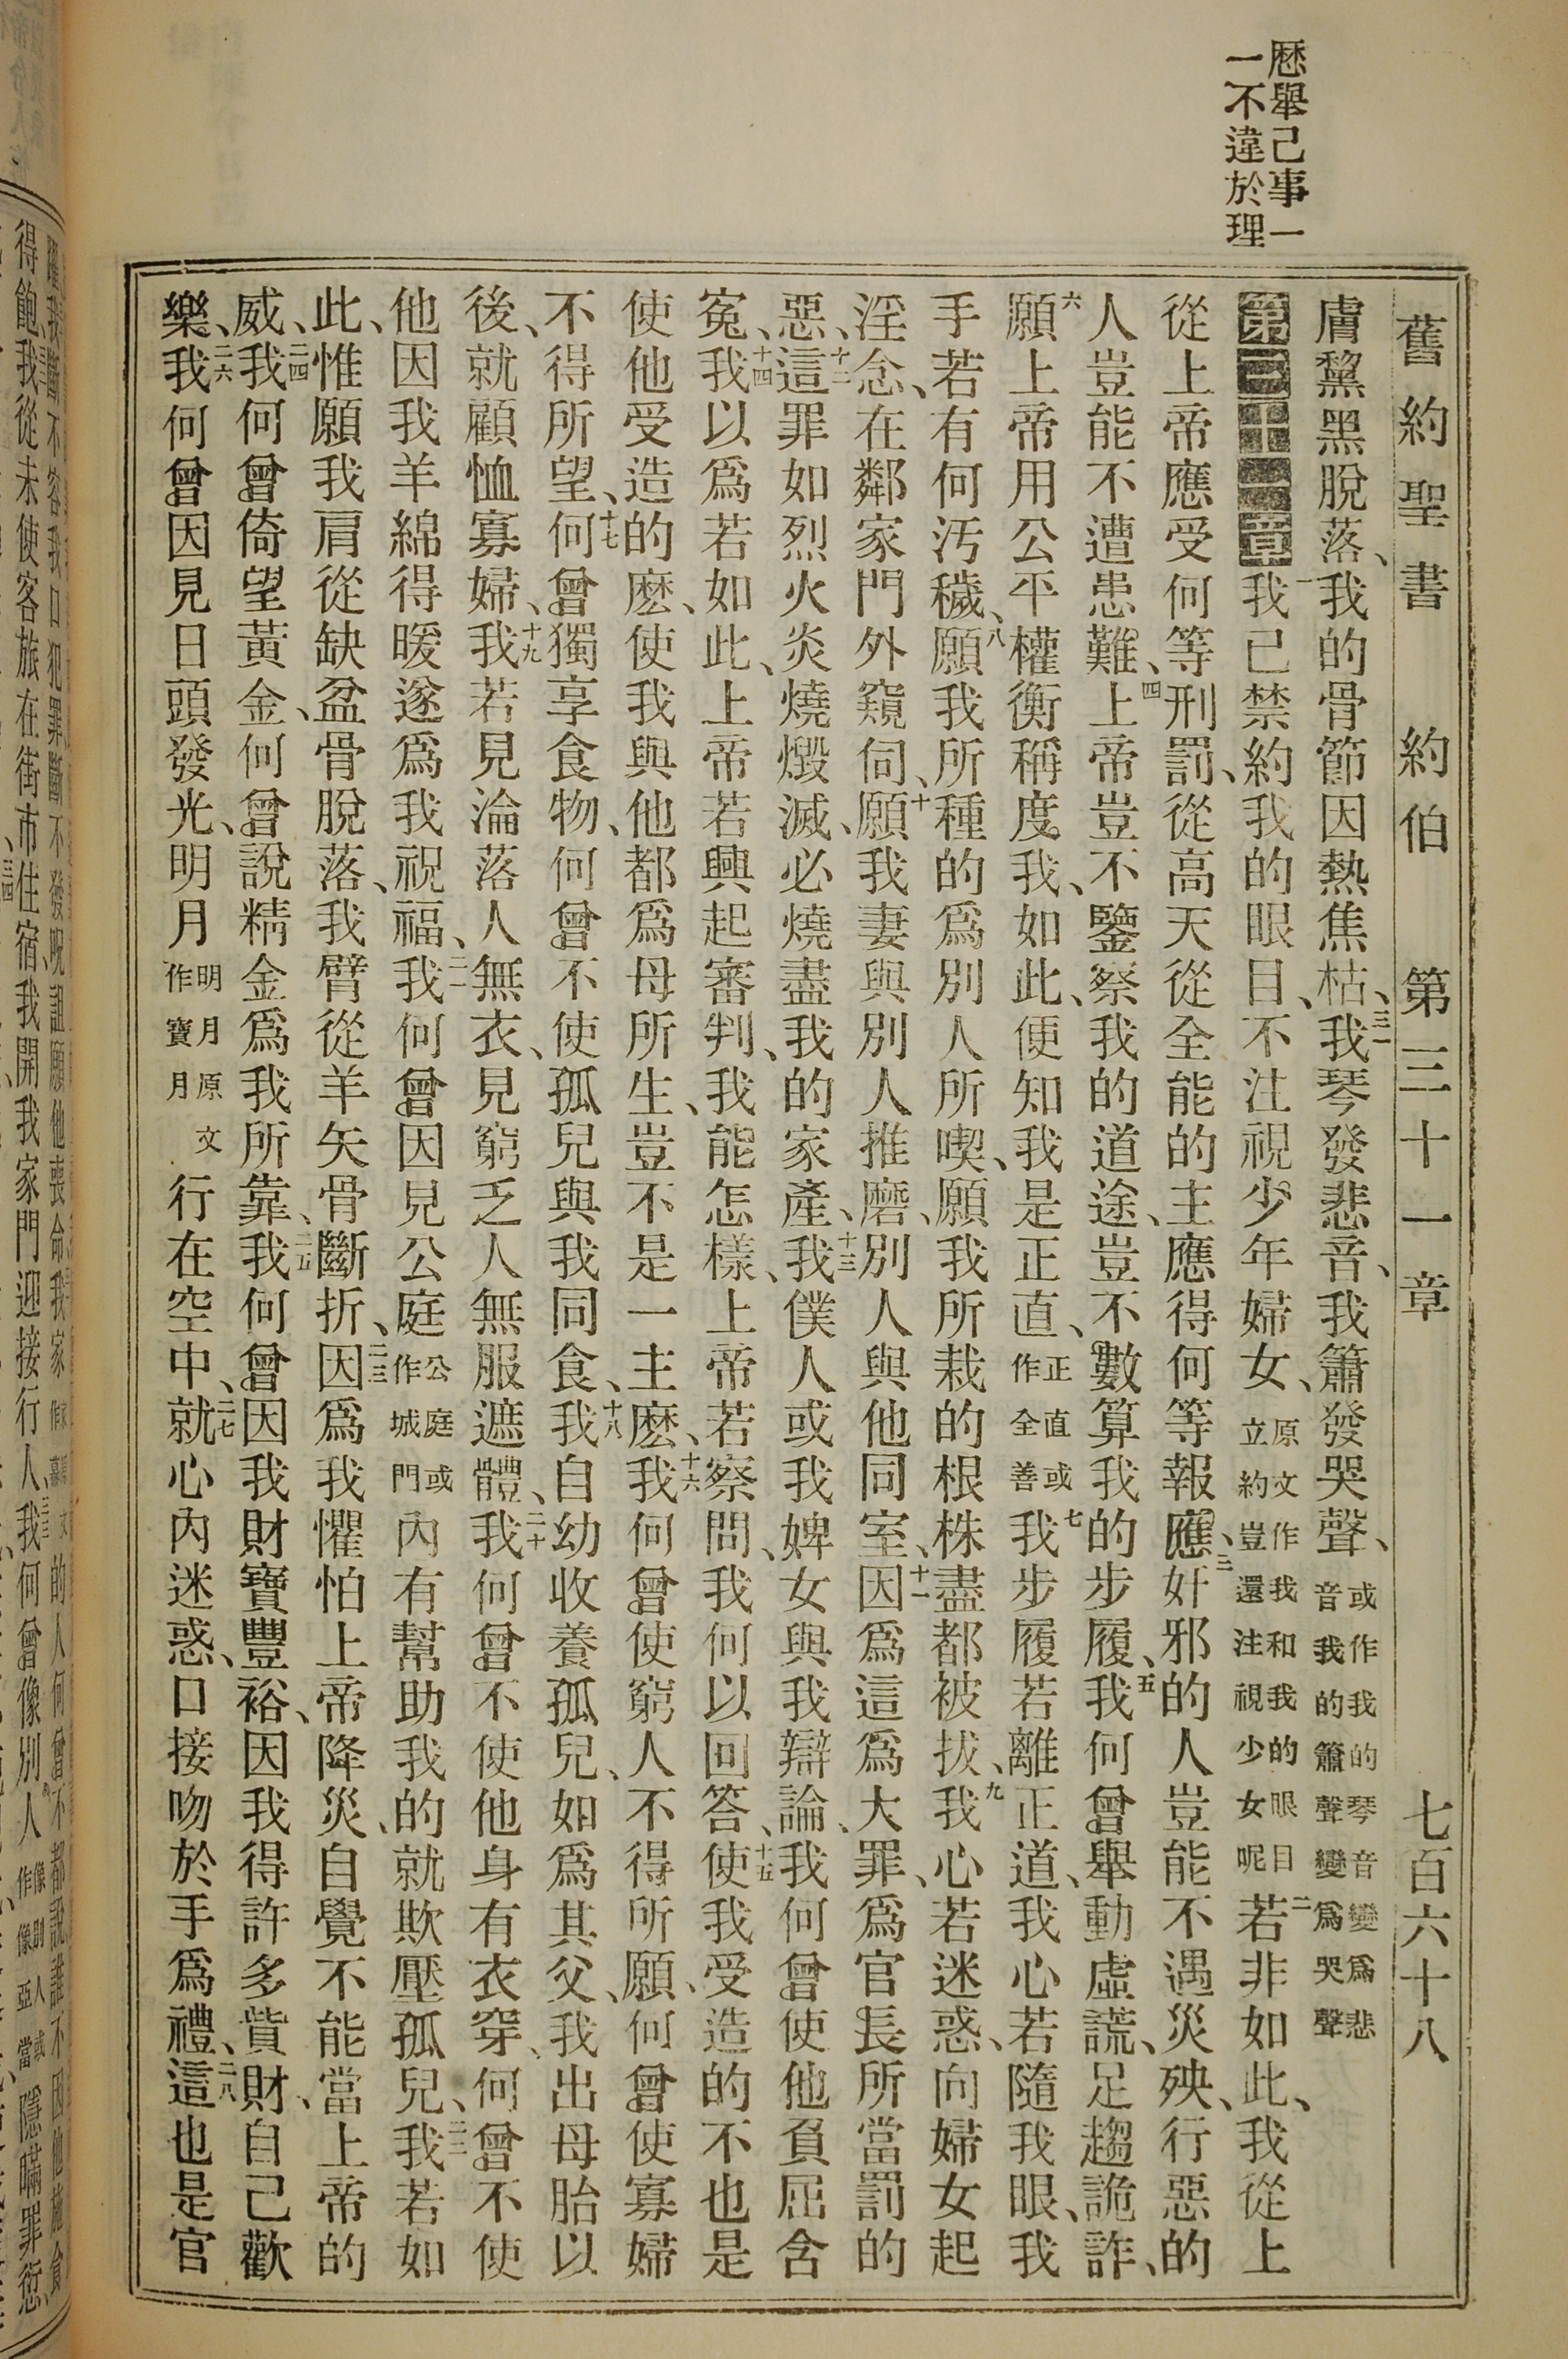 歷舉己事一
一不違於理
舊約聖書 約伯 第三十一章 七百六十八
膚黧黑脫落、我的骨節因熱焦枯、三一我琴發悲音、我簫發哭聲、或作我的琴音變爲悲音我的簫聲變爲哭聲
第三十一章一我己禁約我的眼目、不注視少年婦女、原文作我和我的眼目立約豈還注視少女呢二若非如此、我從上
從上帝應受何等刑罰、從高天從全能的主應得何等報應、三奸邪的人豈能不遇災殃、行惡的
人豈能不遭患難、四上帝豈不鑒察我的道途、豈不數算我的步履、五我何曾舉動虛謊、足趨詭詐、
六願上帝用公平權衡稱度我、如此、便知我是正直、正直或作全善七我步履若離正道、我心若隨我眼、我
手若有何汚穢、八願我所種的爲別人所喫、願我所栽的根株盡都被拔、九我心若迷惑、向婦女起
淫念、在鄰家門外窺伺、十願我妻與別人推磨、別人與他同室、十一因爲這爲大罪、爲官長所當罰的
惡、十二這罪如烈火炎燒燬滅、必燒盡我的家產、十三我僕人或我婢女與我辯論、我何曾使他負屈含
冤、十四我以爲若如此、上帝若興起審判、我能怎樣、上帝若察問、我何以回答、十五使我受造的不也是
使他受造的麽、使我與他都爲母所生、豈不是一主麽、十六我何曾使窮人不得所願、何曾使寡婦
不得所望、十七何曾獨享食物、何曾不使孤兒與我同食、十八我自幼收養孤兒、如爲其父、我出母胎以
後、就顧恤寡婦、十九我若見淪落人無衣、見窮乏人無服遮體、二十我何曾不使他身有衣穿、何曾不使
他因我羊綿得暖遂爲我祝福、二一我何曾因見公庭公庭或作城門內有幫助我的就欺壓孤兒、二二我若如
此、惟願我肩從缺盆骨脫落、我臂從羊矢骨斷折、二三因爲我懼怕上帝降災、自覺不能當上帝的
威、二四我何曾倚望黃金、何曾說精金爲我所靠、二五我何曾因我財寶豐裕、因我得許多貲財、自己歡
樂、二六我何曾因見日頭發光、明月明月原文作寶月行在空中、二七就心內迷惑、口接吻於手爲禮、二八這也是官